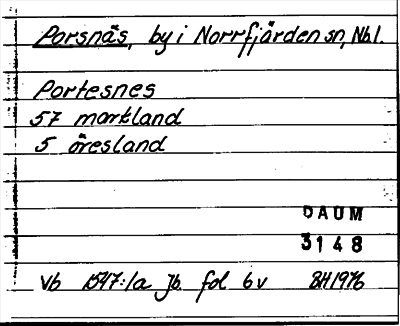 Porsnäs, by i Norrfjärden sn, Nbl.
Portesnes
57 markland
5 öresland
DAUM
3148
Vb 1547:1a Jb. fol 6v BH1976